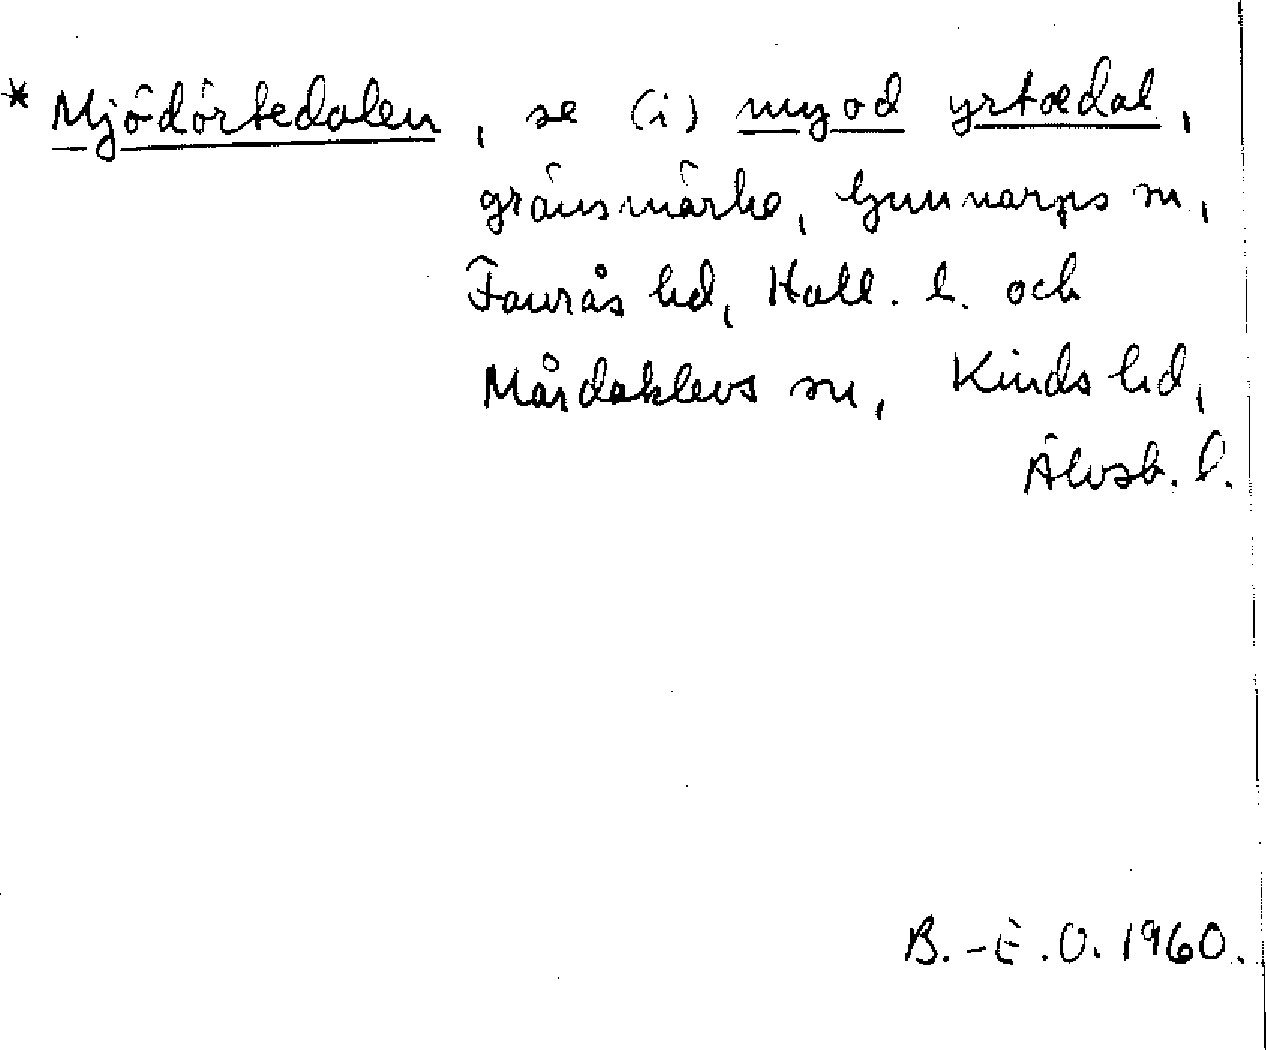 * Mjödörtedalen, se (i) myod yrtædal,
gränsmärke, Gunnarps sn,
Faurås hd, Hall. l. och
Mårdaklevs sn, Kinds hd,
Älvsb. l.
B.-E.O. 1960.